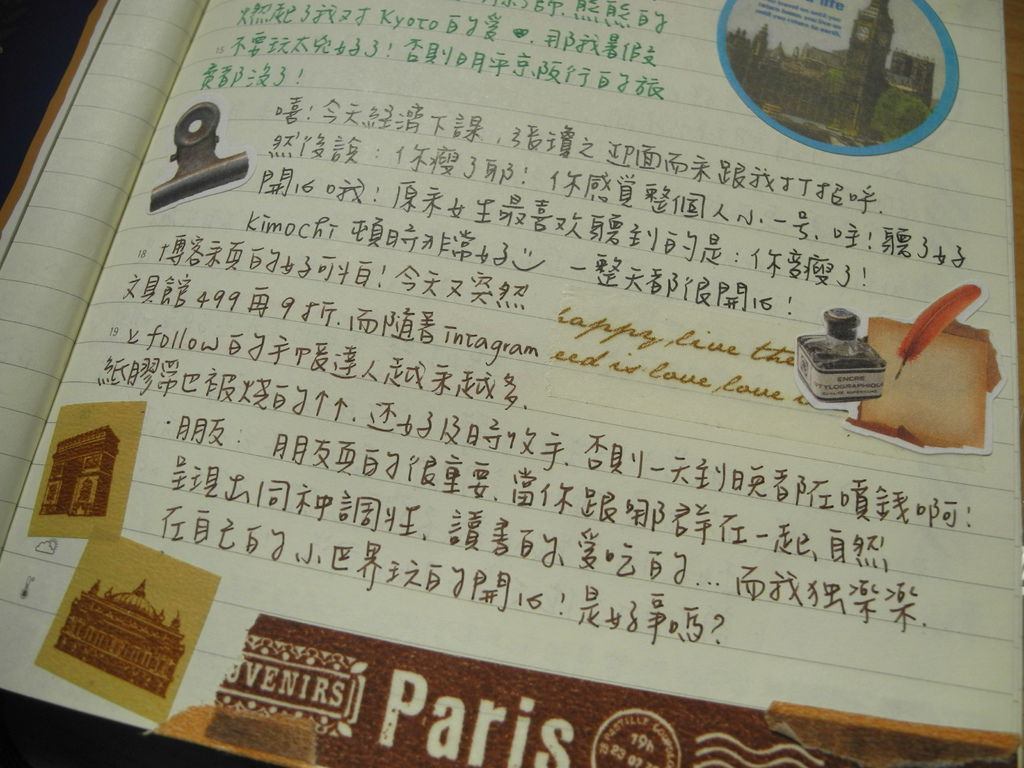 燃起了我对Kyoto的愛 那我暑假
15 不要玩太兇好了！否則明年京阪行的旅
費都沒了！
life
嘻！今天經濟下課，張瓊之迎面而来跟我打招呼.
然後說：你瘦了耶！你感覚整個人小一号. 哇！聽了好
開心哦！原来女生最喜欢聽到的是：你音瘦了！
Kimochi 頓時非常好 一整天都很開心！
18 博客来真的好可怕！今天又突然
文具館499再9折. 而隨著intagram
19 follow的手帳達人越来越多.
紙膠帶也被燒的↑↑. 还好及時收手. 否則一天到晚都在噴錢啊！
·朋友： 朋友真的很重要. 當你跟哪群在一起. 自然
呈現出何种調性. 讀書的、愛吃的... 而我独樂樂.
在自己的小世界玩的開心！是好事嗎？
happy, live the
eed is love, love
ENCRE
STYLOGRAPHIQUE
SOUVENIRS
Paris
19h